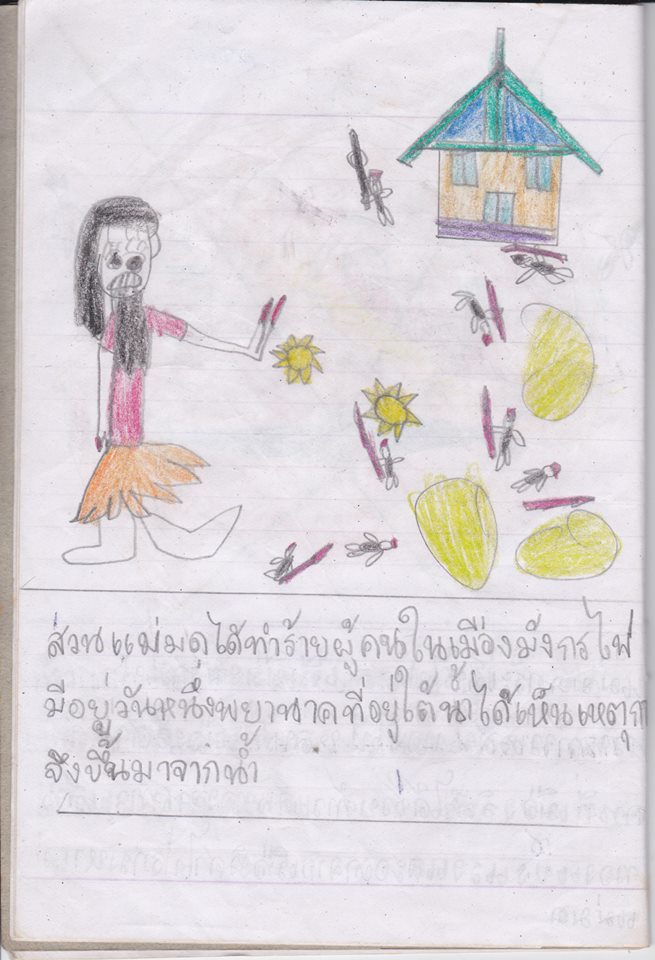 ส่วนแม่มดได้ทำร้ายผู้คนในเมืองมังกรไฟ
มีอยู่วันหนึ่งพยานาคที่อยู่ใต้น้ำได้เห็นเหตุก
จึงขึ้นมาจากน้ำ